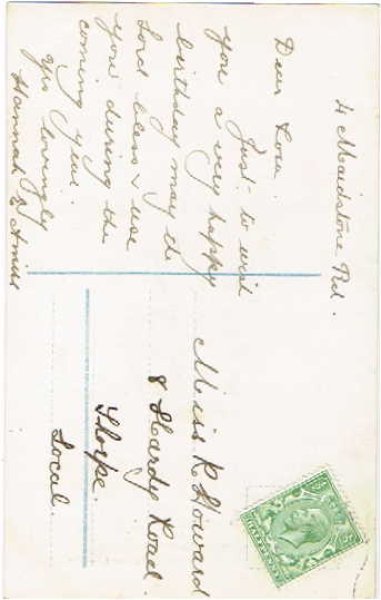 4 Maidstone Rd.
Dear Rose.
Just to wish
you a very happy
birthday may the
Lord bless & use
you during the
coming year.
Yrs lovingly
Hannah
Miss R Howard
8 Hardy Road.
Thorpe.
Local.